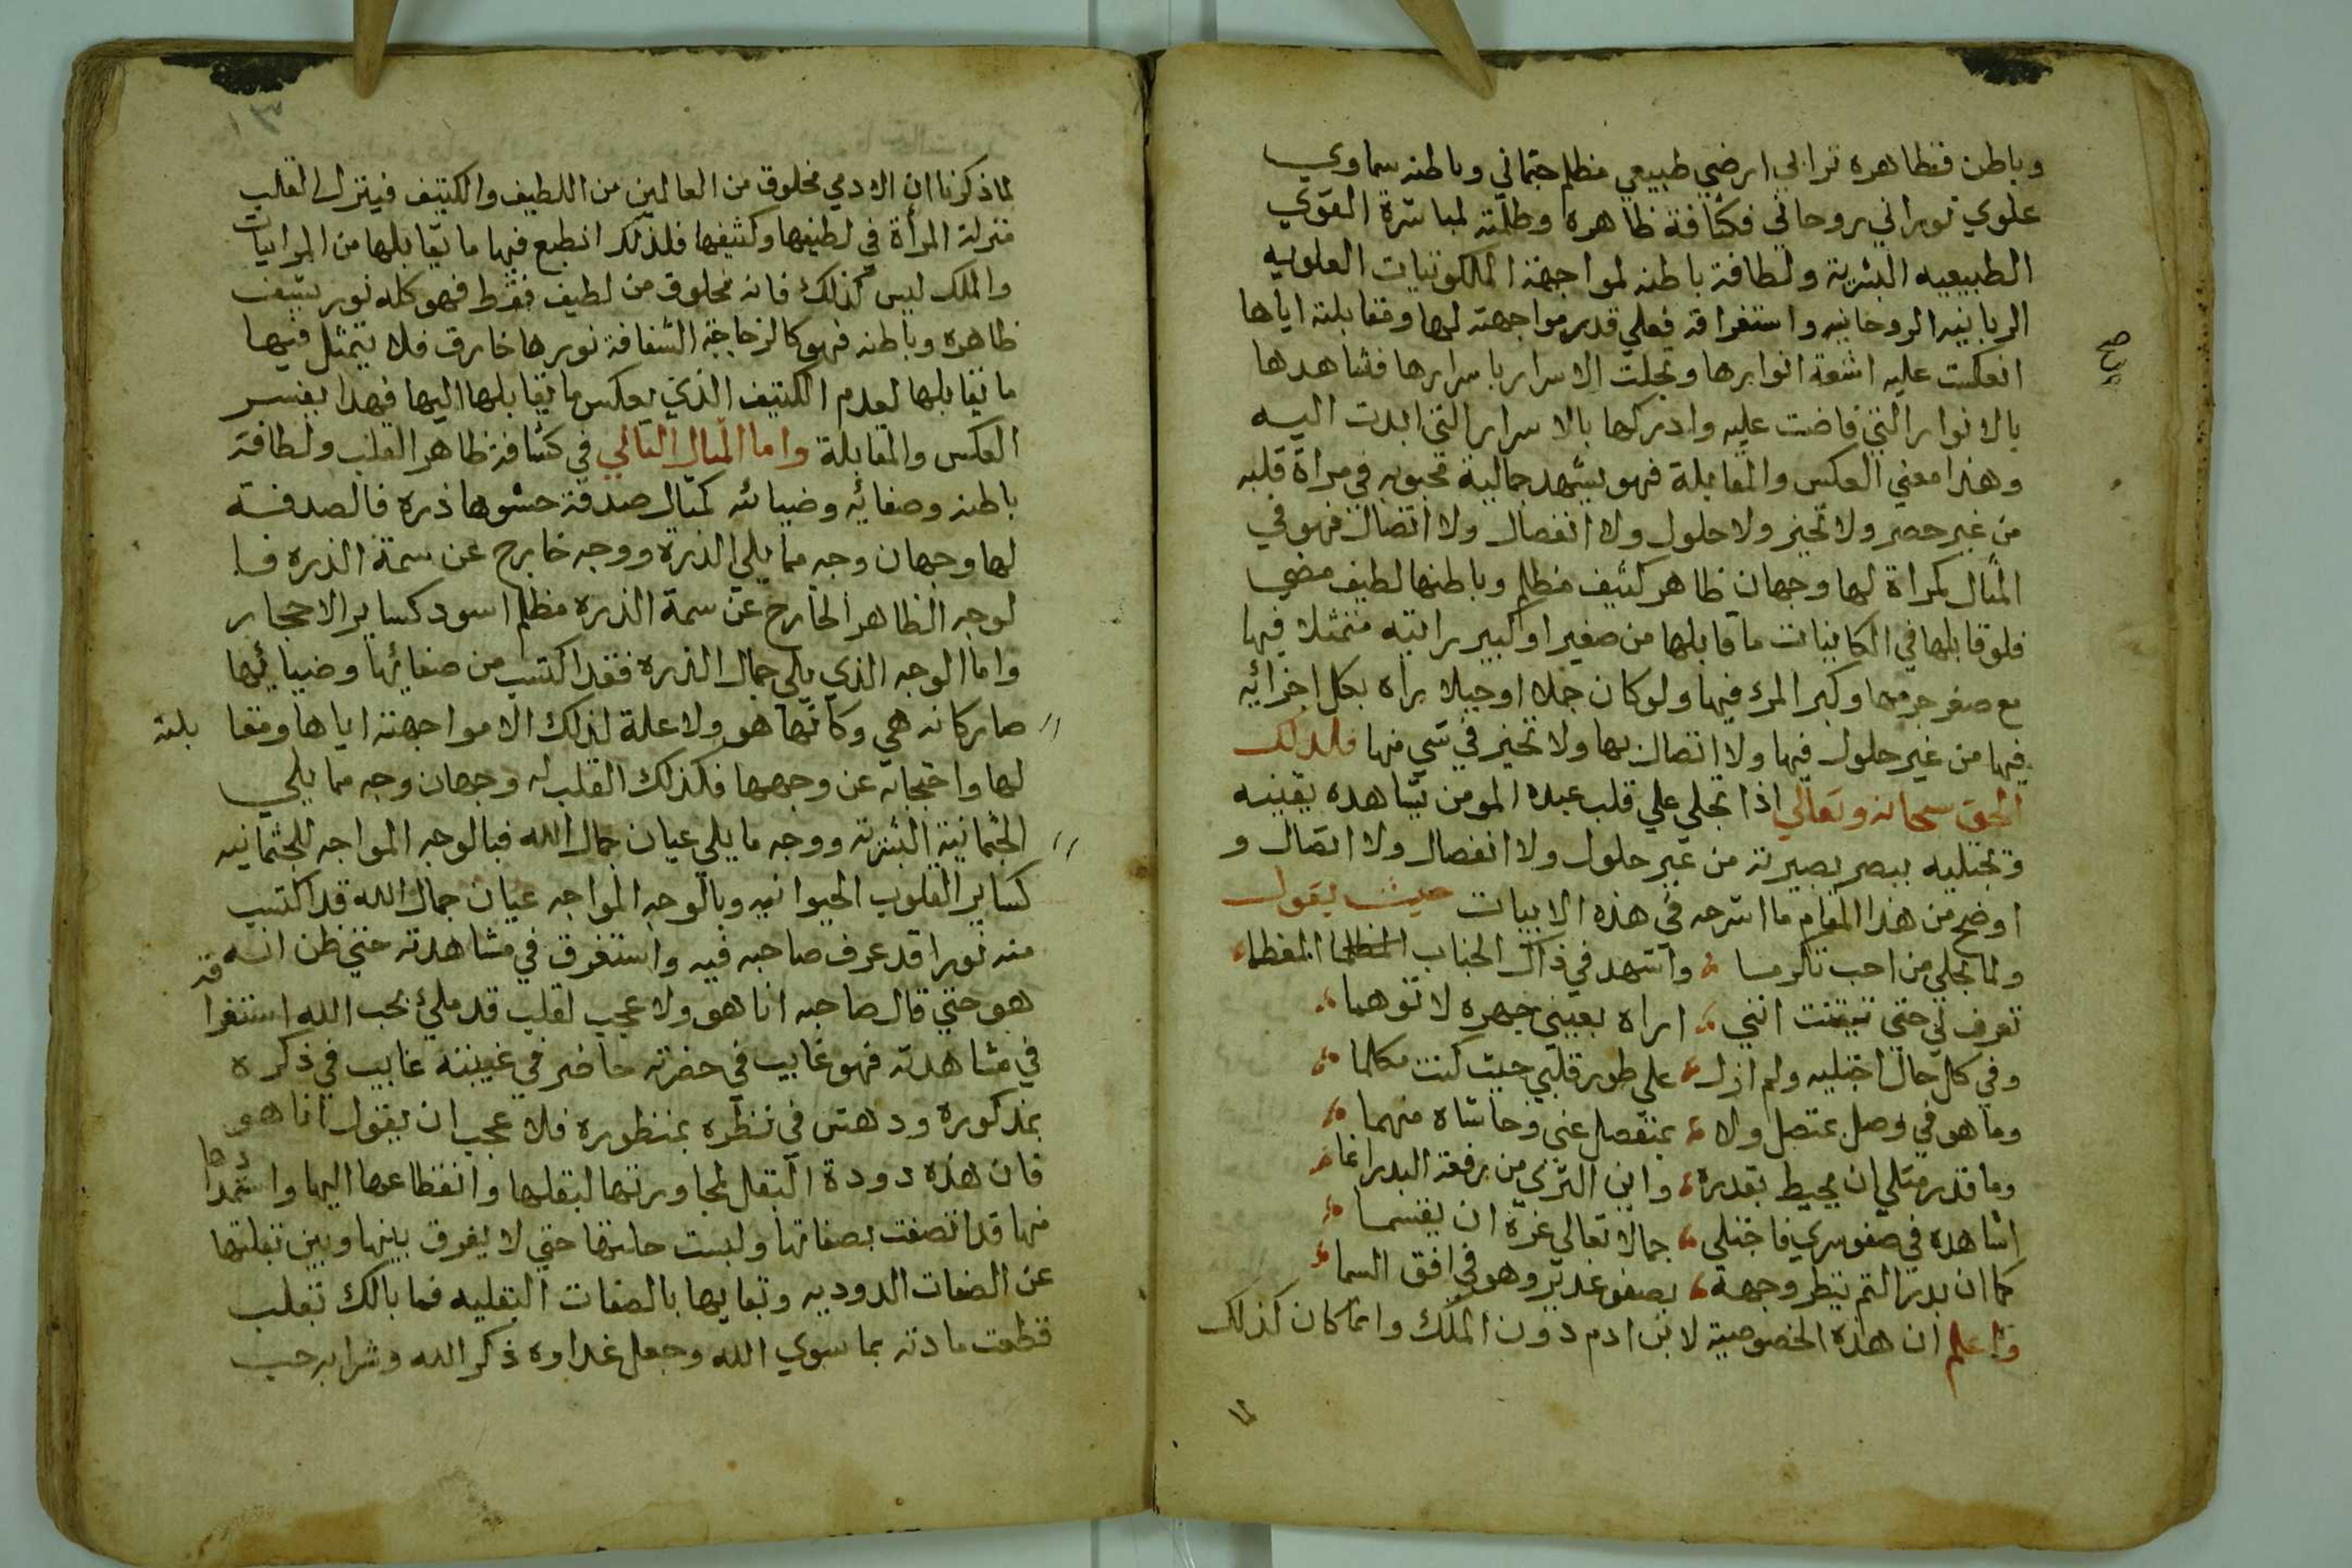 وباطن فظاهره ترابي ارضي طبيعي مظلم جثماني وباطنه سماوي
علوي نوراني روحاني فكثافة ظاهره وظلمته لمباشرة القوي
الطبيعيه البشرية ولطافة باطنه لمواجهة الملكوتيات العلويه
الربانيه الروحانيه واستغراقه فعلي قدر مواجهته لها ومقابلته اياها
انعكست عليه اشعة انوارها وتجلت الاسرار باسرارها فشاهدها
بالانوار التي فاضت عليه وادركها بالاسرار التي ابدت اليه
وهذا معني العكس والمقابلة فهو يشهد جمالية محبوبه في مراة قلبه
من غير حصر ولا تحيز ولا حلول ولا انفصال ولا اتصال فهو في
المثال كمراة لها وجهان ظاهر كثيف مظلم وباطنها لطيف مضي
فلو قابلها في الكاينات ما قابلها من صغير او كبير رايته متمثلا فيها
مع صغر جرمها وكبر المرء فيها ولو كان جملا او جبلا يراه بكل اجزائه
فيها من غير حلول فيها ولا اتصال بها ولا تحيز في شي منها فلذلك
الحق سبحانه وتعالي اذا تجلي علي قلب عبده المومن يشاهده بيقينه
وتجتليه ببصر بصيرته من غير حلول ولا انفصال ولا اتصال و
اوضح من هذا المقام ما اشرحه في هذه الابيات حيث يقول
ولما تجلي من احب تكرما واشهد في ذاك الجناب المعظما
تعرف لي حتي تيقنت انني اراه بعيني جهره لا توهما
وفي كل حال اجتليه ولم ازل علي طور قلبي حيث كنت مكلما
وما هو في وصل بمتصل ولا بمنفصل عني وحاشاه منهما
وما قدر مثلي ان يحيط بقدره واين الثري من رفعة البدر انما
اشاهده في صفو سري فاجتلي جمالا تعالي عزة ان يقسما
كما ان بدر التم ينظر وجهه بصفو غدير وهو في افق السما
واعلم ان هذه الخصوصية لابن ادم دون الملك وانما كان كذلك
لما ذكرنا ان الادمي مخلوق من العالمين من اللطيف والكثيف فيتزل القلب
منزلة المرأة في لطيفها وكثيفها فلذلك انطبع فيها ما يقابلها من المرايات
والملك ليس كذلك فانه مخلوق من لطيف فقط فهو كله نور يشف
ظاهره وباطنه فهو كالزجاجة الشفافة نورها خارق فلا يتمثل فيها
ما يقابلها لعدم الكثيف الذي يعكس ما يقابلها اليها فهذا يفسر
العكس والمقابلة واما المثال الثاني في كثافة ظاهر القلب ولطافة
باطنه وصفائه وضيائه كمثال صدفة حشوها ذره فالصدفة
لها وجهان وجه مما يلي الذرة ووجه خارج عن سمة الذره فا
لوجه الظاهر الخارج عن سمة الذره مظلم اسود كساير الاحجار
واما الوجه الذي يلي جمال الذره فقد اكتسب من صفائها وضيائها
صار كانه هي وكانها هو ولا علة لذلك الا مواجهته اياها ومقا بلته
لها واحتجابه عن وجهها فكذلك القلب له وجهان وجه مما يلي
الجثمانية البشرية ووجه ما يلي عيان جمال الله فبالوجه المواجه للجثمانيه
كساير القلوب الحيوانيه وبالوجه المواجه عيان جمال الله قد اكتسب
منه نورا قد عرف صاحبه فيه واستغرق في مشاهدته حتي ظن انه
هو حتي قال صاحبه انا هو ولا عجب لقلب قد ملئ بحب الله استغراقه
في مشاهدته فهو غايب في حضرته حاضر في غيبته غايب في ذكره
بمذكوره ودهش في نظره بمنظوره فلا عجب ان يقول انا هو
فان هذه دودة البقل لمجاورتها لبقلها وانقطاعها اليها واستمدادها
منها قد اتصفت بصفاتها ولبست حلتها حتي لا يفرق بينها وبين بقلتها
عن الصفات الدوديه وتعايها بالصفات البقليه فما بالك بقلب
قطعت مادته بما سوي الله وجعل غداوه ذكر الله وشرابه حب